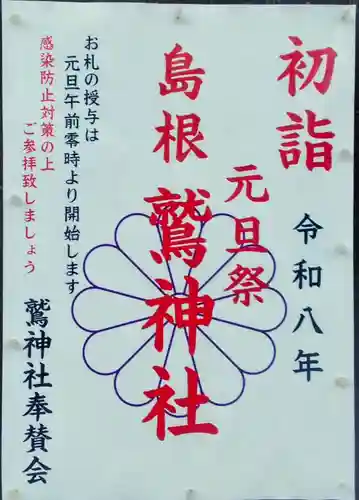 初詣
令和八年
元旦祭
島根鷲神社
お札の授与は
元旦午前零時より開始します
感染防止対策の上
ご参拝致しましょう
鷲神社奉賛会